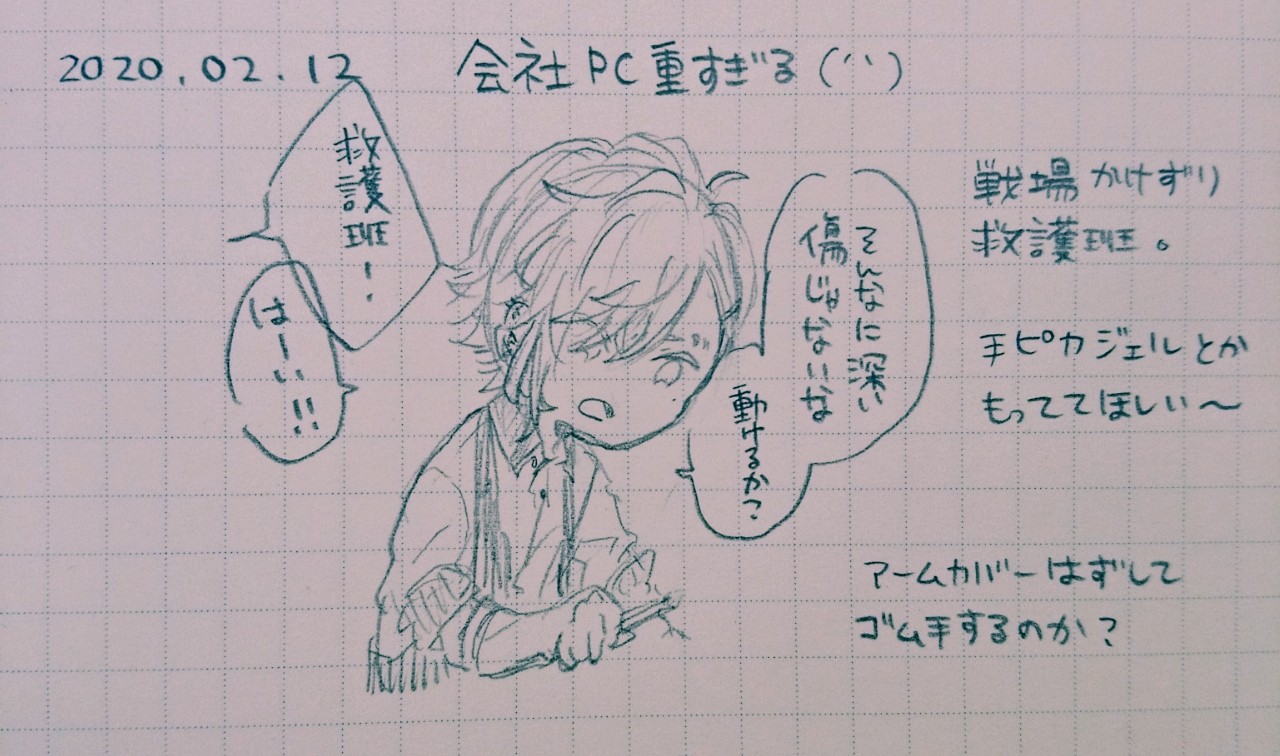 2020.02.12
会社PC重すぎる(´`)
救護班!
はーい!!
そんなに深い
傷じゃないな
動けるか?
戦場かけずり
救護班。
手ピカジェルとか
もっててほしい〜
アームカバーはずして
ゴム手するのか?